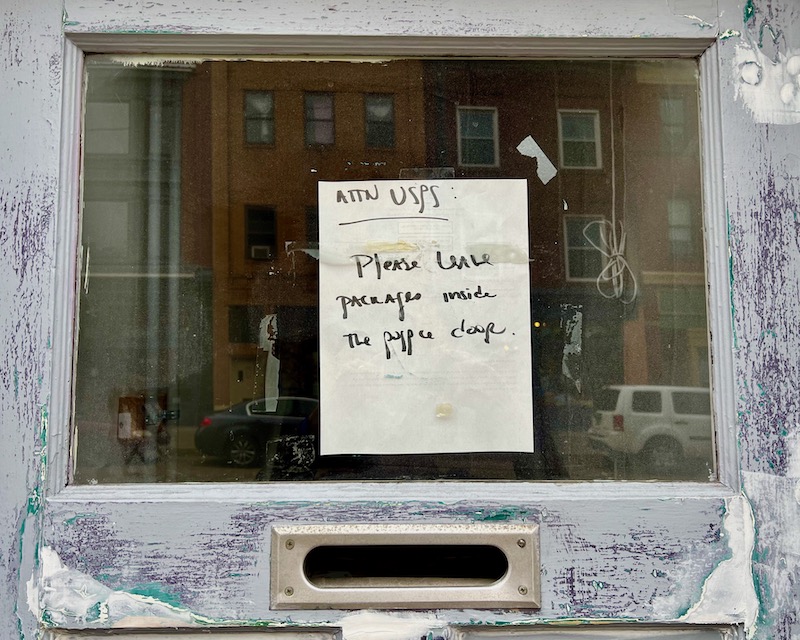 ATTN USPS:
Please leave
packages inside
the purple door.